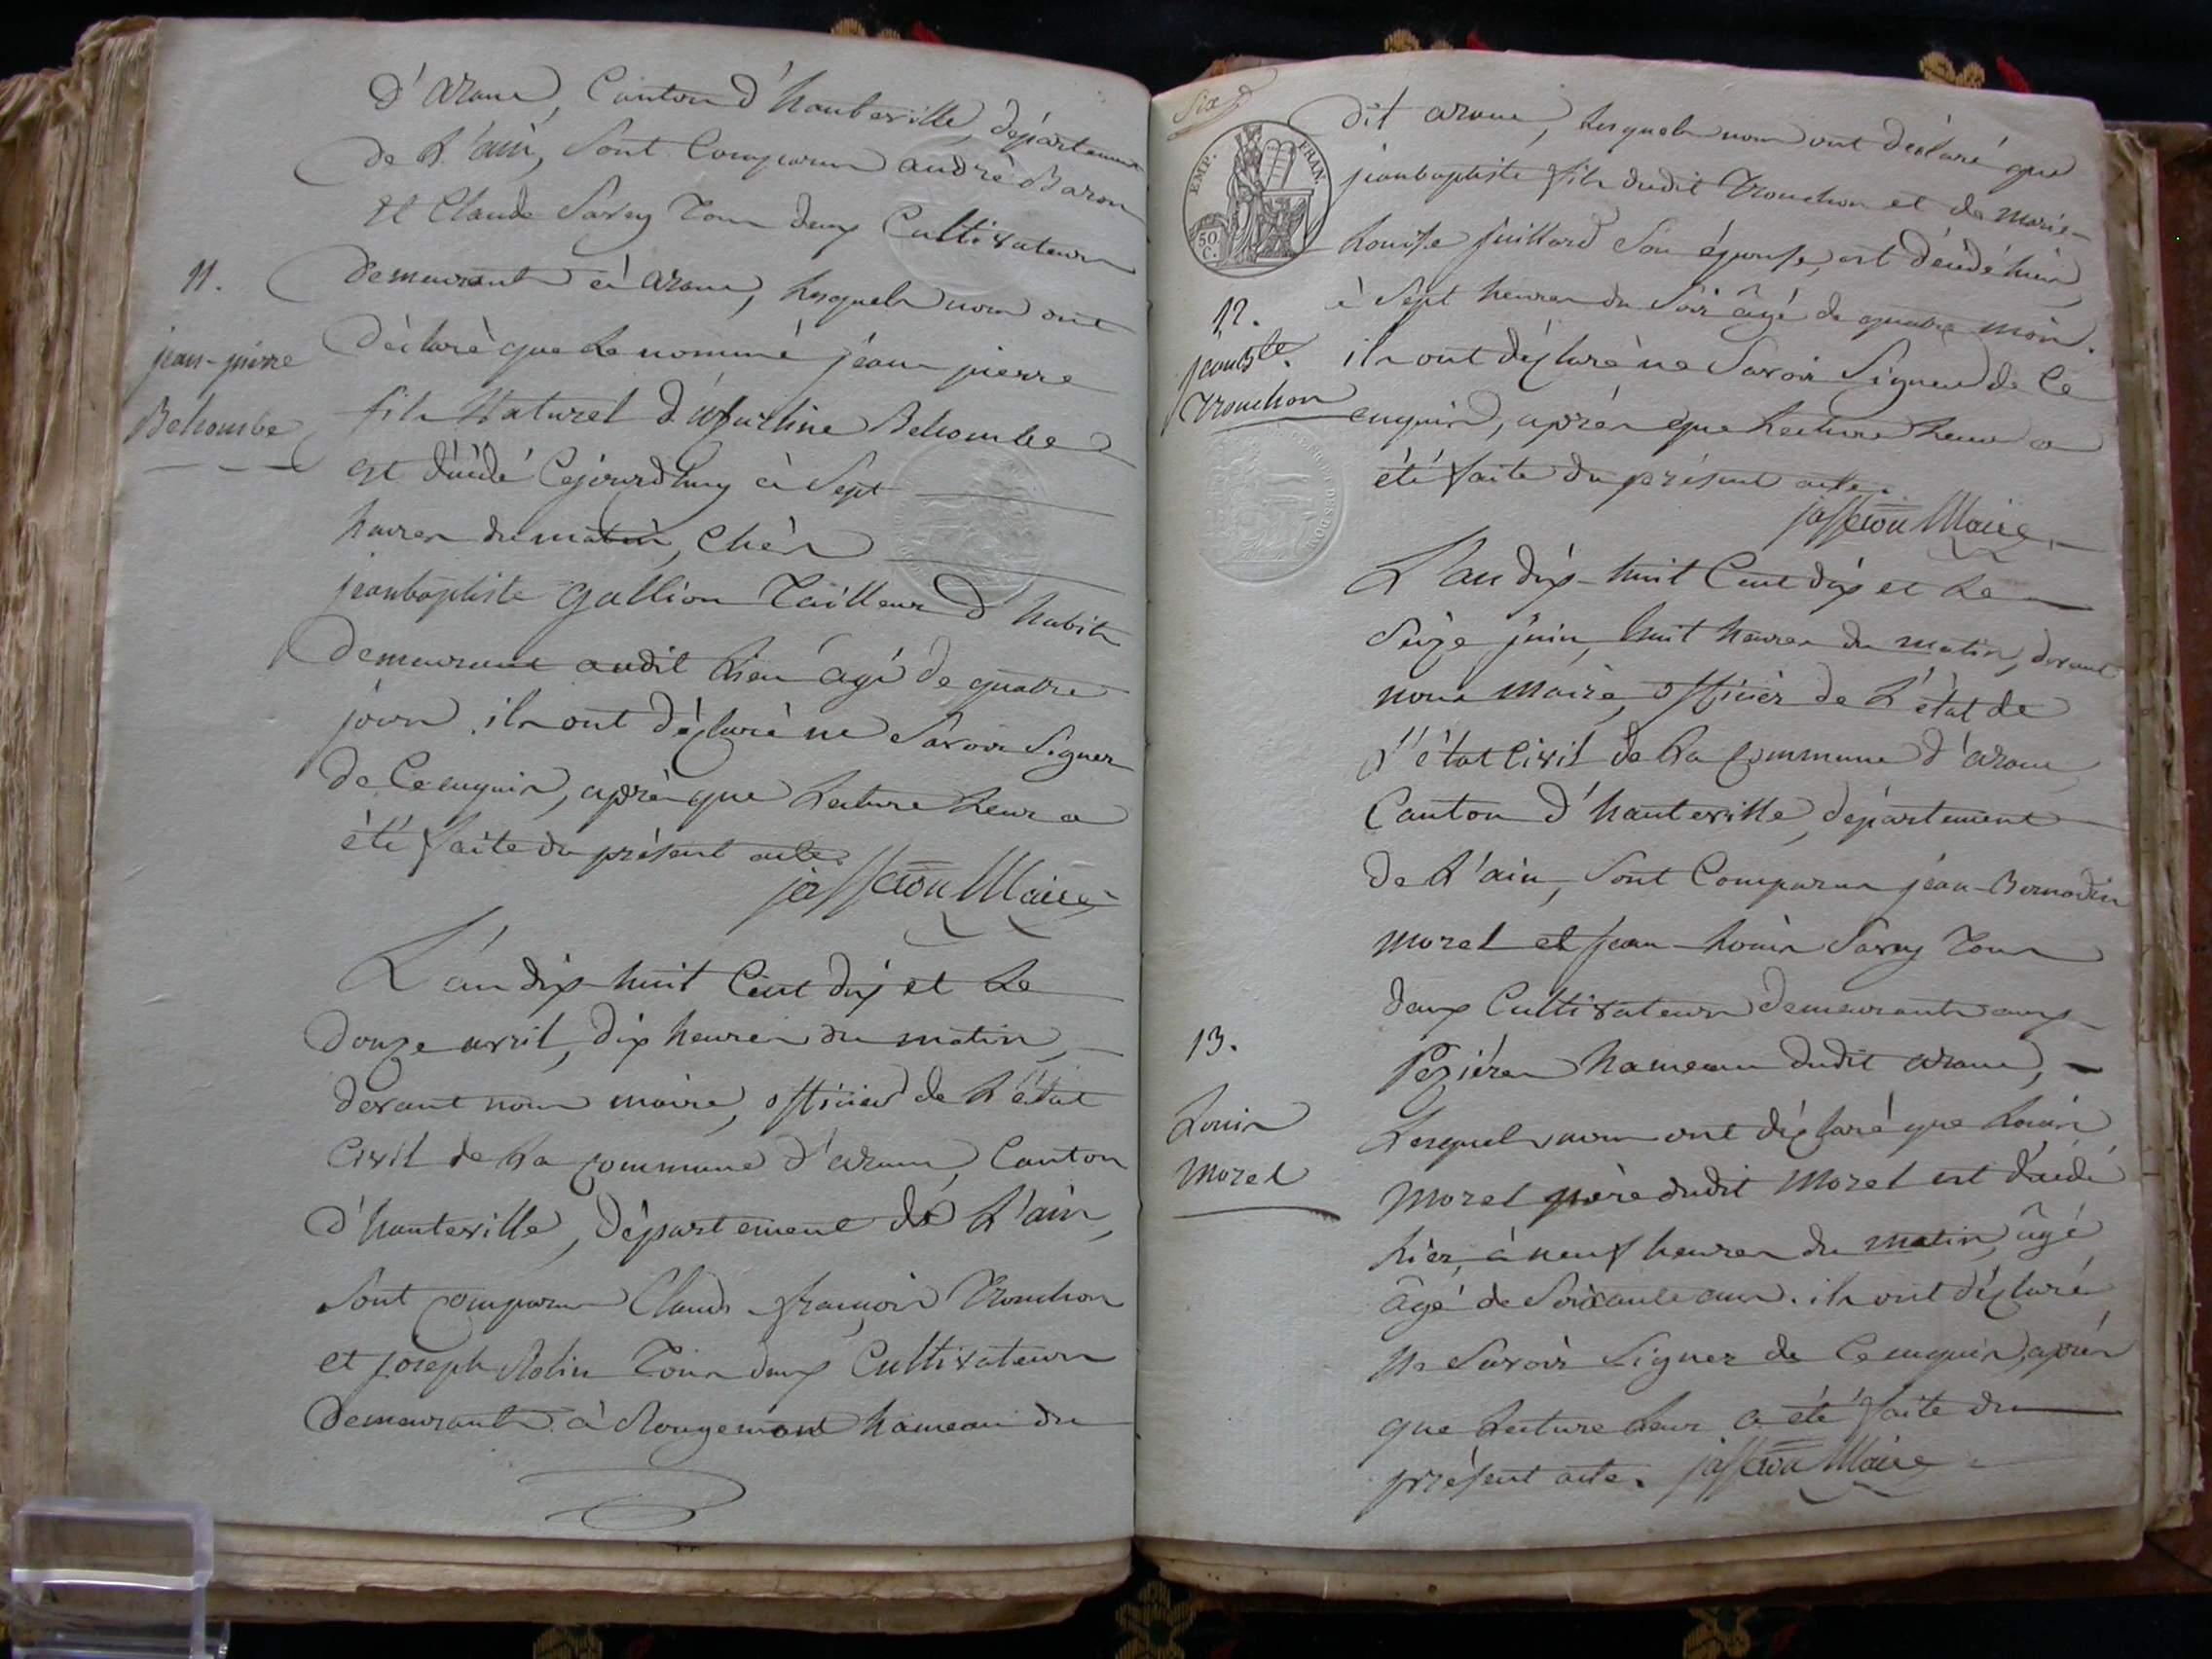 d'arane, Canton d'hauteville, département
de L'ain, Sont Comparus andrè Baron
et Claude Savey Tous deux Cultivateurs
11.
demeurants à arane, Lesquels nous ont
jean-pierre
Belsombe
déclarè que Le nommé jean pierre
fils Naturel d' Belsombe
est dècèdé Cejourdhuy à Sept
heures du matin, Chès
jeanbaptiste gallion Tailleur d'habits
demeurant audit Lieu âgé de quatre
jours. ils ont déclarè ne Savoir Signer
de Ce enquis, après que Lecture Leur a
été faite du présent acte.
jasseron Maire
L'an dix-huit Cent dix et Le
douze avril, dix heures du matin,
devant nous maire, officier de L'état
Civil de La Commune d'arane, Canton
d'hauteville, département de L'ain,
Sont Comparus Claude françois Tronchon
et joseph Rolin Tous deux Cultivateurs
demeurants à Rougemont hameau du
Six
EMP. FRAN.
50 C.
dit arane, Lesquels nous ont déclaré que
jeanbaptiste fils dudit Tronchon et de marie-
Louise juillard Son épouse, est décédé hier
à Sept heures du Soir âgé de quatre mois.
12.
jeanBte.
Tronchon
ils ont déclarè ne Savoir Signer de Ce
enquis, après que Lecture Leur a
été faite du présent acte.
jasseron Maire
L'an dix-huit Cent dix et Le
Seize juin, huit heures du matin, devant
nous maire, officier de L'état de
l'état Civil de La Commune d'arane
Canton d'hauteville, département
de L'ain, Sont Comparus jean-Bernardin
morel et jean-Louis Savey Tous
deux Cultivateurs demeurants aux
13.
Pézières hameau dudit arane,
Louis
Morel
Lesquels nous ont déclaré que Louis
Morel père dudit Morel est décédé
hier, à neuf heures du matin, âgé
âgé de Soixante ans. ils ont déclaré
ne Savoir Signer de Ce enquis, après
que Lecture Leur a été faite du
présent acte. jasseron Maire